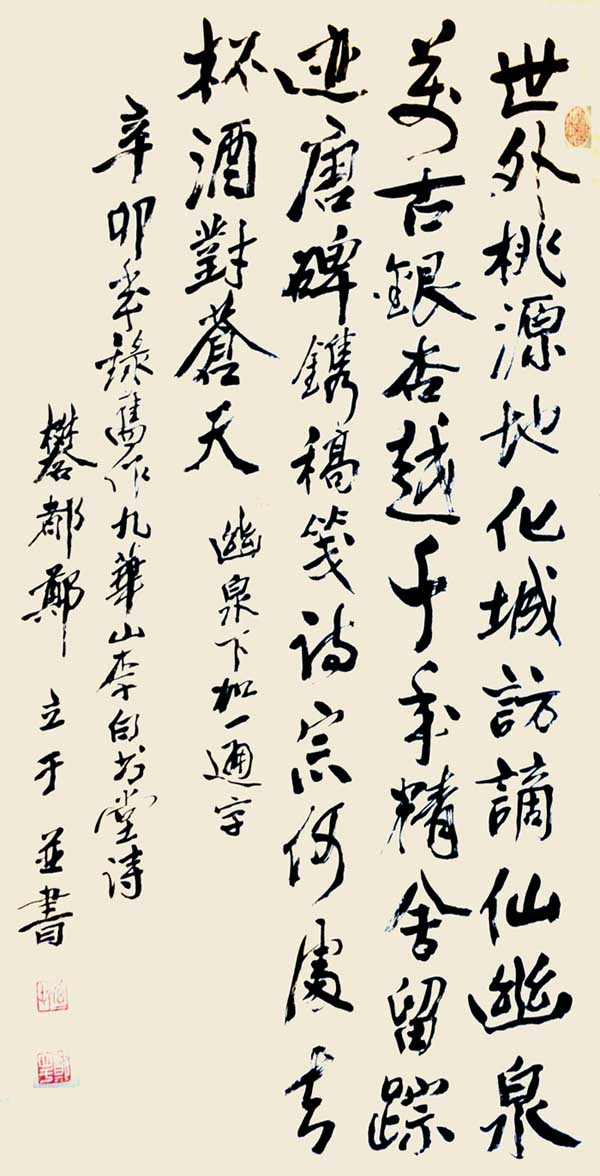 世外桃源地化城訪謫仙幽泉
萬古銀杏越千年精舍留踪
迹唐碑鐫稿箋詩宗何處去
杯酒對蒼天
幽泉下加一通字
辛卯年錄舊作九華山李白书堂詩
礬都鄭立于並書